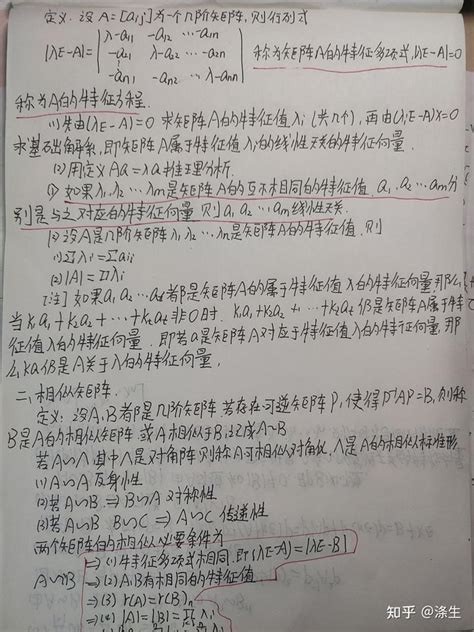 定义:设A=[aij]为一个n阶矩阵,则行列式
|λE-A| = | λ-a11 -a12 … -a1n
-a21 λ-a22 … -a2n
-an1 -an2 … λ-ann | 称为矩阵A的特征多项式,|λE-A|=0
称为A的特征方程.
(1)先由|λE-A|=0 求矩阵A的特征值λi(共n个),再由(λiE-A)x=0
求基础解系,即矩阵A属于特征值λi的线性无关的特征向量.
(2)用定义Aα=λα进行推理分析.
① 如果λ1,λ2…λm是矩阵A的互不相同的特征值,α1,α2…αm分
别是与之对应的特征向量,则α1,α2…αm线性无关.
② 设A是n阶矩阵λ1,λ2…λn是矩阵A的特征值,则
(1)Σλi=Σaii
(2)|A|=Πλi
[注]如果α1,α2…αt都是矩阵A的属于特征值λ的特征向量,那么
当k1α1+k2α2+…+ktαt非0时,k1α1+k2α2+…+ktαt仍是矩阵A属于特
征值λ的特征向量.即若α是矩阵A对应于特征值λ的特征向量,那
么kα仍是A关于λ的特征向量.
二、相似矩阵.
定义:设A,B都是n阶矩阵,若存在可逆矩阵P,使得P⁻¹AP=B,则称
B是A的相似矩阵,或A相似于B,记成A~B
若A~Λ,其中Λ是对角阵,则称A可相似对角化,Λ是A的相似标准形
(1)A~A 反身性
(2)若A~B ⇒ B~A 对称性
(3)若A~B B~C ⇒ A~C 传递性
两个矩阵的相似必要条件为
⇒(1)特征多项式相同,即|λE-A|=|λE-B|
A~B ⇒(2)A,B有相同的特征值
⇒(3) r(A)=r(B)
⇒(4) |A|=|B|=Πλi
知乎 @涤生